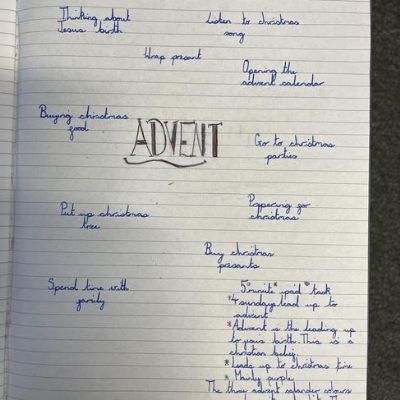 Thinking about
Jesus birth
Listen to christmas
song
Wrap present
Opening the
advent calendar
Buying christmas
food
ADVENT
Go to christmas
parties
Put up christmas
tree
christmas
Buy christmas
presants
Spend time with
family
5 minute pad task
*4 sundays lead up to
advent
*Advent is the leading up
to jesus birth. This is a
christian belief
*Leads up to christmas time
*Mainly purple
The three advent calander colours